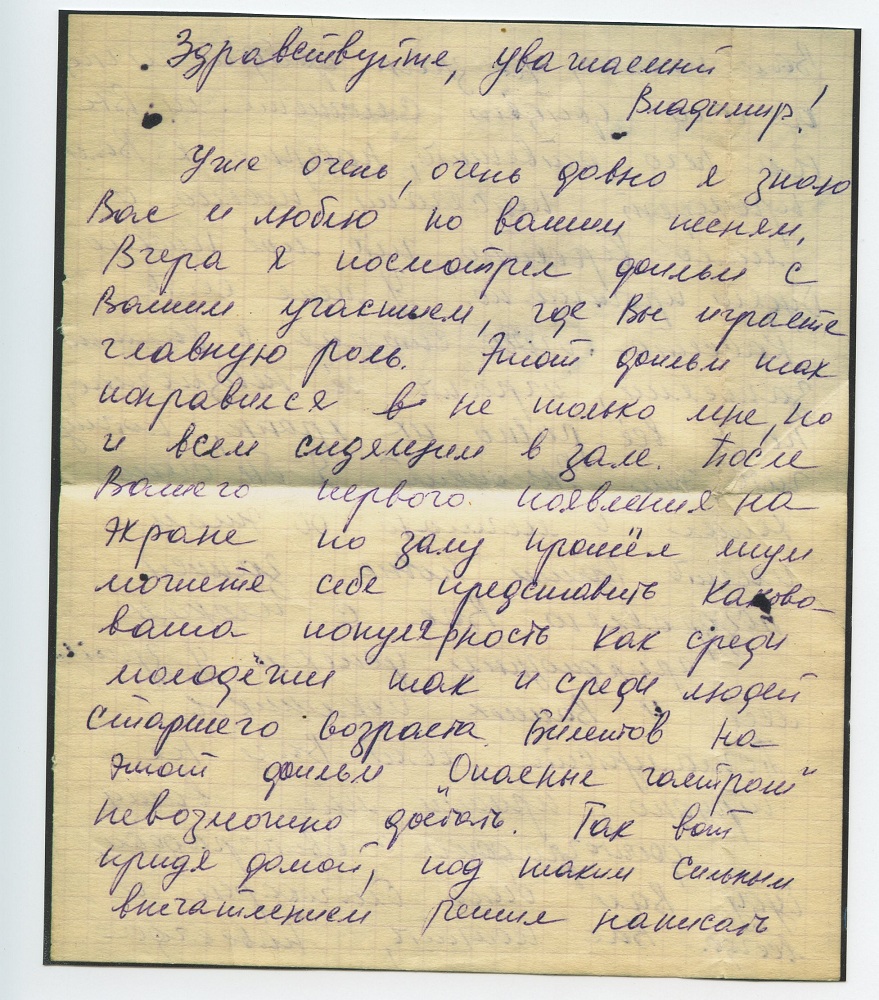 Здравствуйте, уважаемый
Владимир!
Уже очень, очень давно я знаю
Вас и люблю по вашим песням,
Вчера я посмотрел фильм с
Вашим участием, где Вы играете
главную роль. Этот фильм так
понравился в не только мне, но
и всем сидящим в зале. После
Вашего первого появления на
экране по залу прошёл шум
можете себе представить какова
ваша популярность как среди
молодёжи так и среди людей
старшего возраста. Билетов на
этот фильм "Опасные гастроли"
невозможно достать. Так вот
придя домой, под таким сильным
впечатлением решил написать